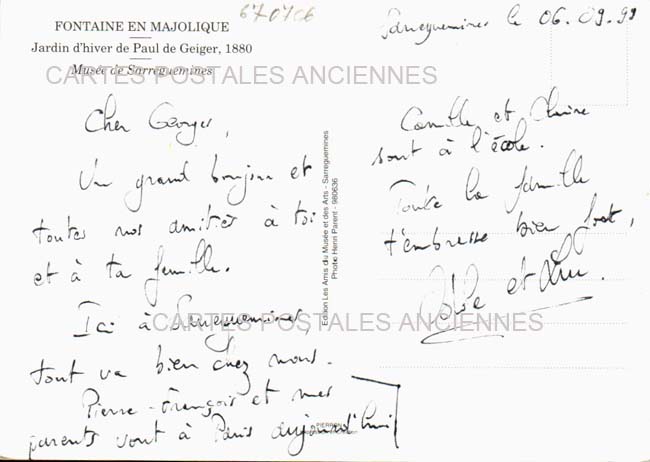 FONTAINE EN MAJOLIQUE
Jardin d'hiver de Paul de Geiger, 1880
Musée de Sarreguemines
670706
CARTES POSTALES ANCIENNES
Cher Georges,
Un grand bonjour et
toutes nos amitiés à toi
et à ta famille.
Ici à Sarreguemines,
tout va bien chez nous.
Pierre-François et mes
parents sont à Paris aujourd'hui
Edition Les Amis du Musée et des Arts - Sarreguemines
Photo Henri Parent - 980636
PIERRON
Sarreguemines le 06.09.99
Camille et Claire
sont à l'école.
Toute la famille
t'embrasse bien fort,
et
CARTES POSTALES ANCIENNES